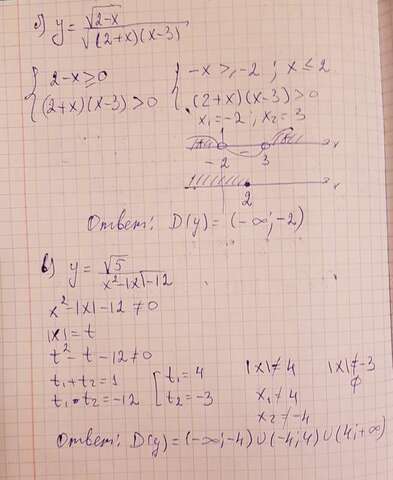 б) y = √(2-x) / √((2+x)(x-3))
{ 2-x ≥ 0
(2+x)(x-3) > 0
{ -x ≥ -2 ; x ≤ 2
(2+x)(x-3) > 0
x₁ = -2 ; x₂ = 3
+ - +
-2 3 x
2 x
Ответ: D(y) = (-∞; -2)
в) y = √5 / (x² - |x| - 12)
x² - |x| - 12 ≠ 0
|x| = t
t² - t - 12 ≠ 0
t₁ + t₂ = 1
t₁ · t₂ = -12
[ t₁ = 4
t₂ = -3
|x| ≠ 4
x₁ ≠ 4
x₂ ≠ -4
|x| ≠ -3
∅
Ответ: D(y) = (-∞; -4) ∪ (-4; 4) ∪ (4; +∞)